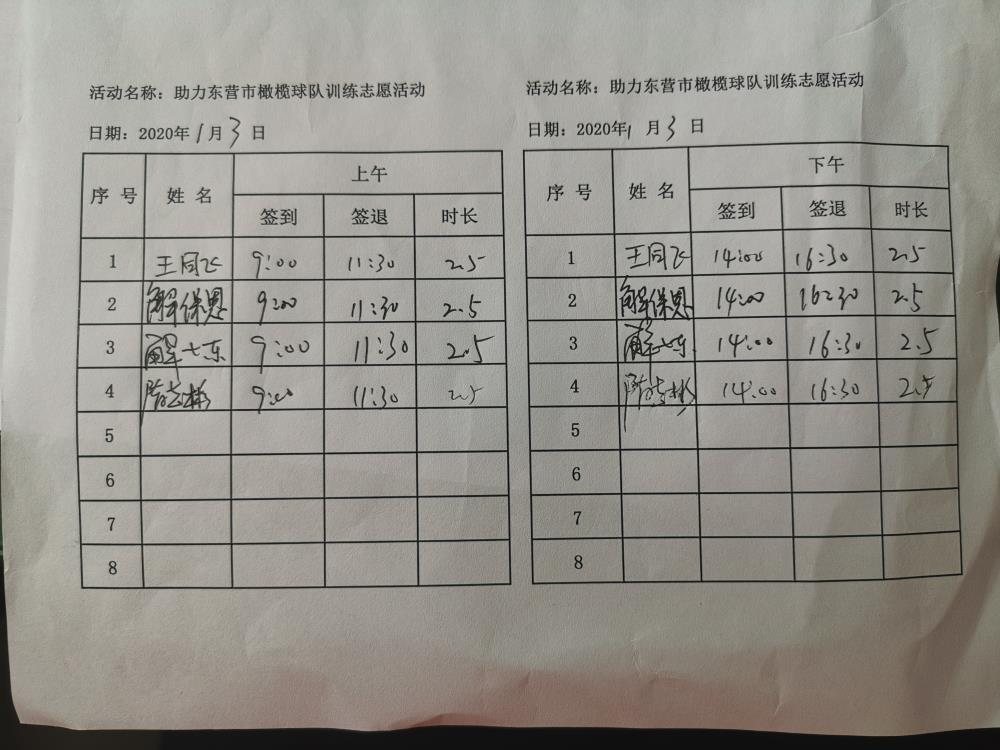 活动名称：助力东营市橄榄球队训练志愿活动
日期：2020年1月3日
序号 姓名 上午
签到 签退 时长
1 王同飞 9:00 11:30 2.5
2 解保恩 9:00 11:30 2.5
3 解 东 9:00 11:30 2.5
4 9:00 11:30 2.5
5
6
7
8
活动名称：助力东营市橄榄球队训练志愿活动
日期：2020年1月3日
序号 姓名 下午
签到 签退 时长
1 王同飞 14:00 16:30 2.5
2 解保恩 14:00 16:30 2.5
3 东 14:00 16:30 2.5
4 14:00 16:30 2.5
5
6
7
8